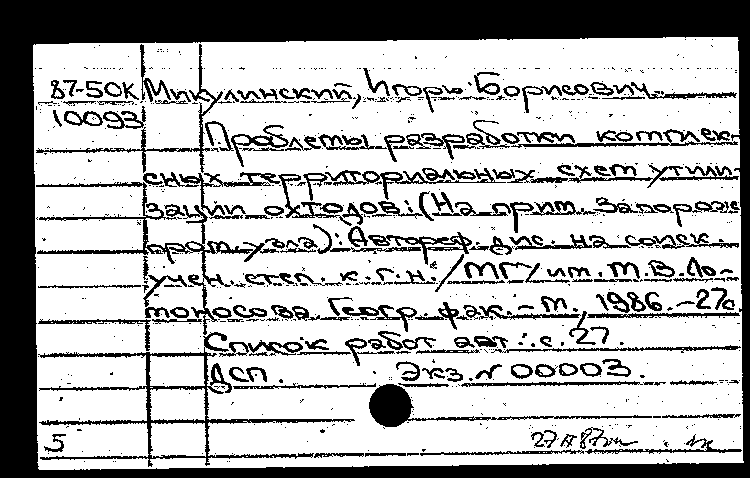 87-50К Микулинский, Игорь Борисович.
10093
Проблемы разработки комплек-
сных территориальных схем утили-
зации охтодов: (На прим. Запорож
пром. узла): Автореф. дис. на соиск.
учен. степ. к.г.н. / МГУ им. М.В. Ло-
моносова. Геогр. фак. - М., 1986. - 27с
Список работ авт.: с. 27.
ДСП. Экз. № 00003.
5